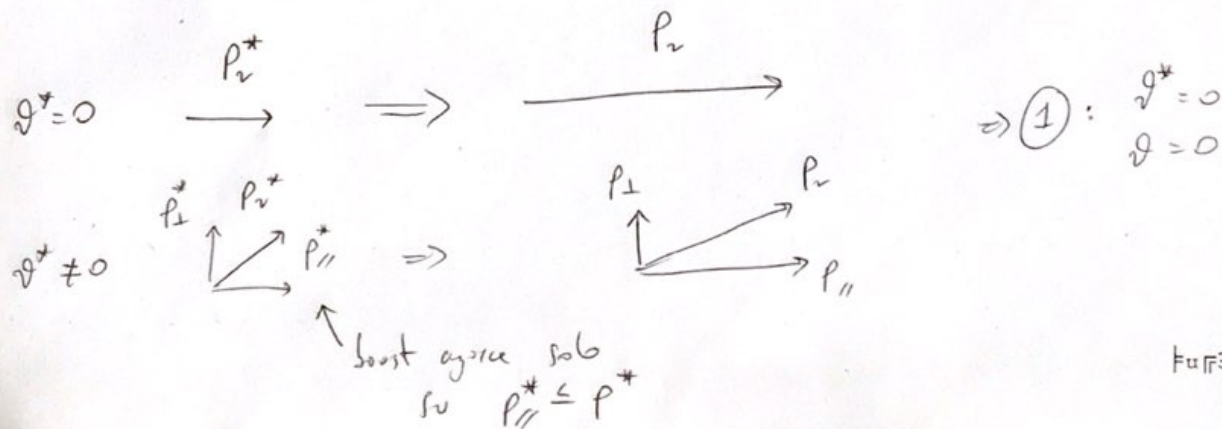 ϑ* = 0 p_ν* ⟹ p_ν ⇒ ① : ϑ* = 0
ϑ = 0
ϑ* ≠ 0 p_⊥* p_ν* p_//* ⇒ p_⊥ p_ν p_//
boost agisce solo
su p_//* ≤ p*